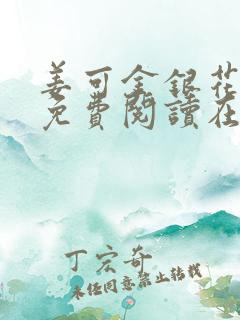 姜可金銀花
免費閱讀在
丁宏奇
未经同意禁止转载